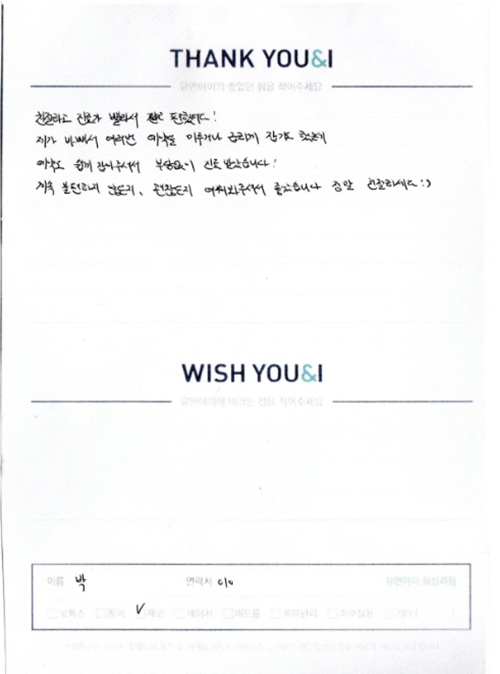 THANK YOU&I
유앤아이의 좋았던 점을 적어주세요
친절하고 진료가 빨라서 편했어요!
제가 바빠서 여러번 예약을 미루거나 급하게 잡기도 했는데
예약도 쉽게 잡아주셔서 부담없이 진료 받았습니다!
계속 불편하지 않은지, 괜찮은지 여쭤봐주셔서 좋았습니다 정말 친절하세요 :)
WISH YOU&I
유앤아이에 바라는 점을 적어주세요
이름 박 연락처 010 유앤아이 관심과정
보톡스 필러 제모 레이저 여드름 피부관리 피부질환 기타 ( )